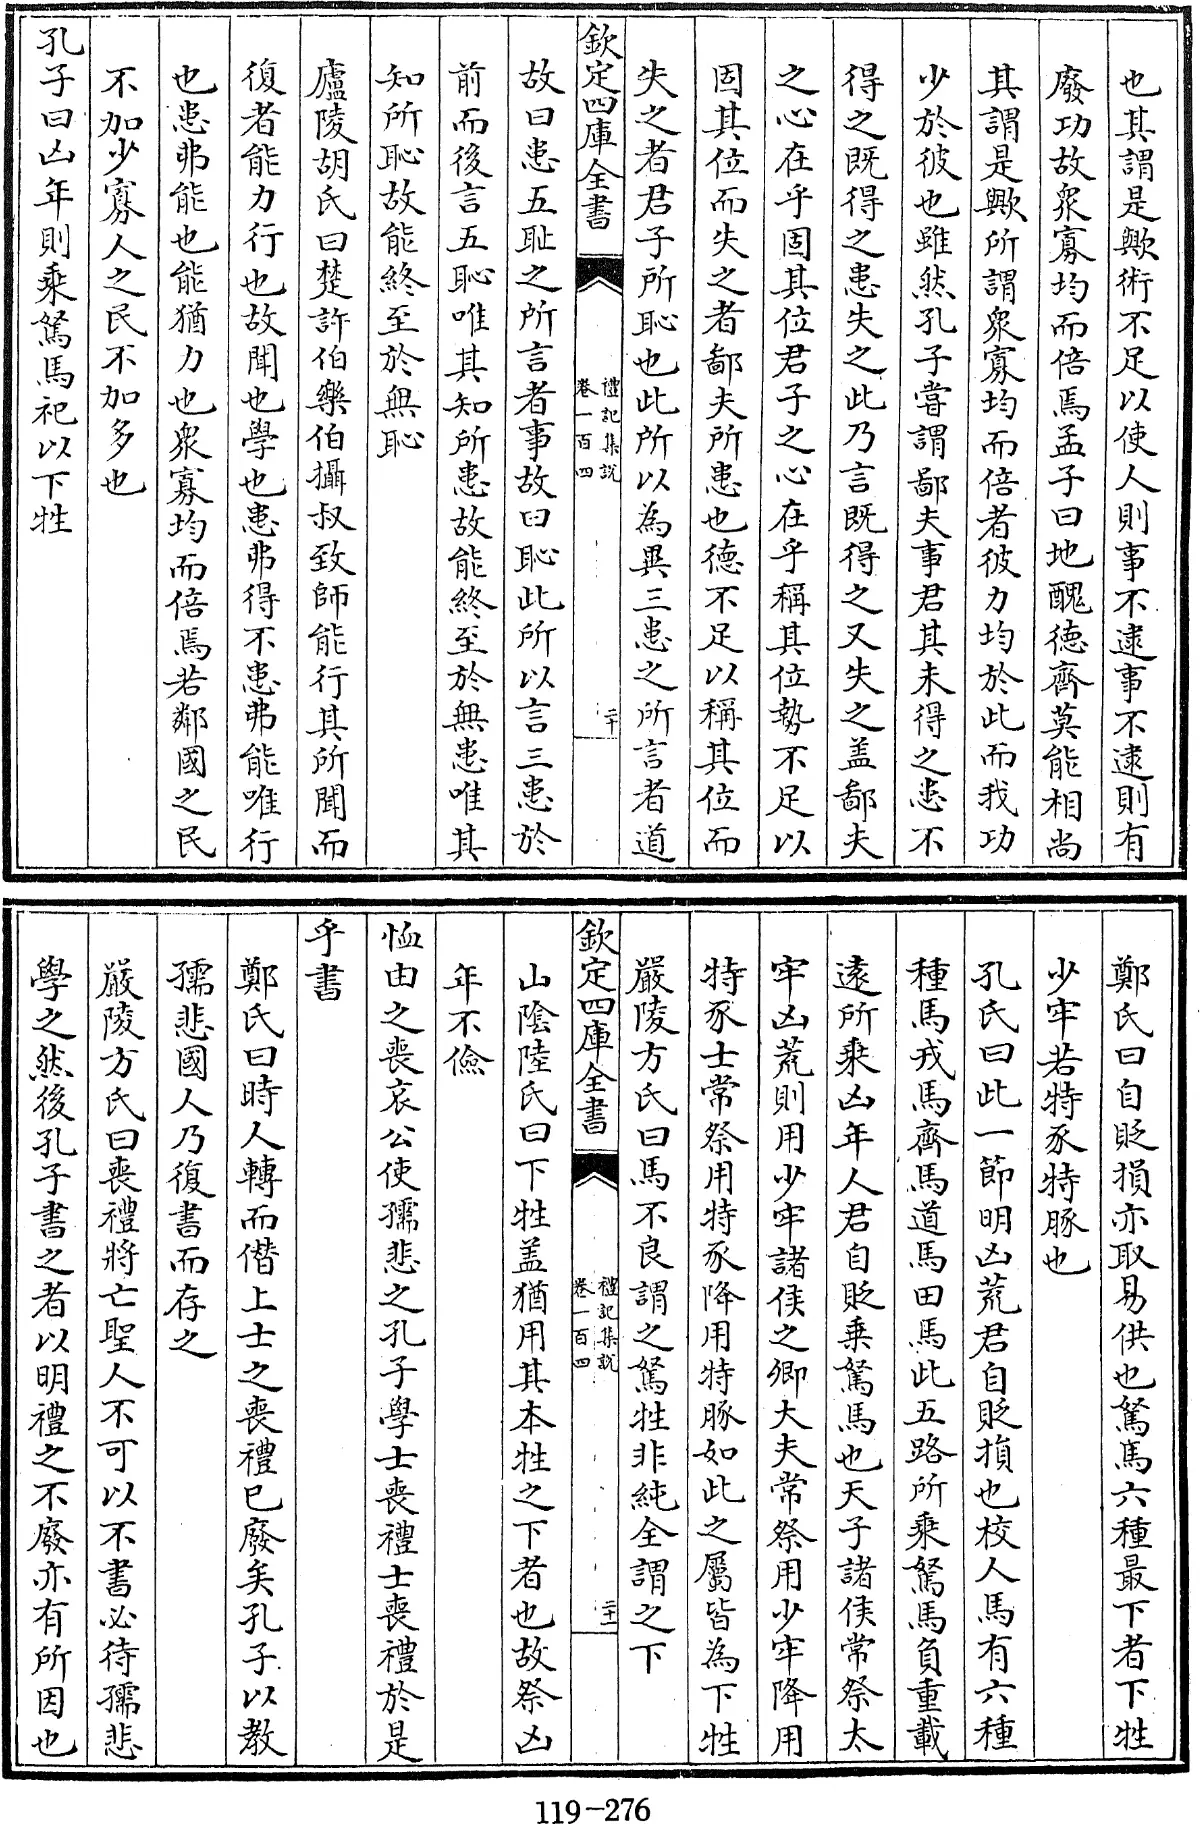 也其謂是歟術不足以使人則事不逮事不逮則有
廢功故衆寡均而倍焉孟子曰地醜德齊莫能相尚
其謂是歟所謂衆寡均而倍者彼力均於此而我功
少於彼也雖然孔子嘗謂鄙夫事君其未得之患不
得之既得之患失之此乃言既得之又失之盖鄙夫
之心在乎固其位君子之心在乎稱其位勢不足以
固其位而失之者鄙夫所患也德不足以稱其位而
失之者君子所恥也此所以為異三患之所言者道
欽定四庫全書
禮記集說
卷一百四
二十
故曰患五耻之所言者事故曰恥此所以言三患於
前而後言五恥唯其知所患故能終至於無患唯其
知所恥故能終至於無恥
廬陵胡氏曰楚許伯樂伯攝叔致師能行其所聞而
復者能力行也故聞也學也患弗得不患弗能唯行
也患弗能也能猶力也衆寡均而倍焉若鄰國之民
不加少寡人之民不加多也
孔子曰凶年則乘駑馬祀以下牲
鄭氏曰自貶損亦取易供也駑馬六種最下者下牲
少牢若特豕特豚也
孔氏曰此一節明凶荒君自貶損也校人馬有六種
種馬戎馬齊馬道馬田馬此五路所乘駑馬負重載
遠所乗凶年人君自貶乗駑馬也天子諸侯常祭太
牢凶荒則用少牢諸侯之卿大夫常祭用少牢降用
特豕士常祭用特豕降用特豚如此之屬皆為下牲
嚴陵方氏曰馬不良謂之駑牲非純全謂之下
欽定四庫全書
禮記集說
卷一百四
二十一
山陰陸氏曰下牲盖猶用其本牲之下者也故祭凶
年不儉
恤由之喪哀公使孺悲之孔子學士喪禮士喪禮於是
乎書
鄭氏曰時人轉而僭上士之喪禮已廢矣孔子以教
孺悲國人乃復書而存之
嚴陵方氏曰喪禮將亡聖人不可以不書必待孺悲
學之然後孔子書之者以明禮之不廢亦有所因也
119-276